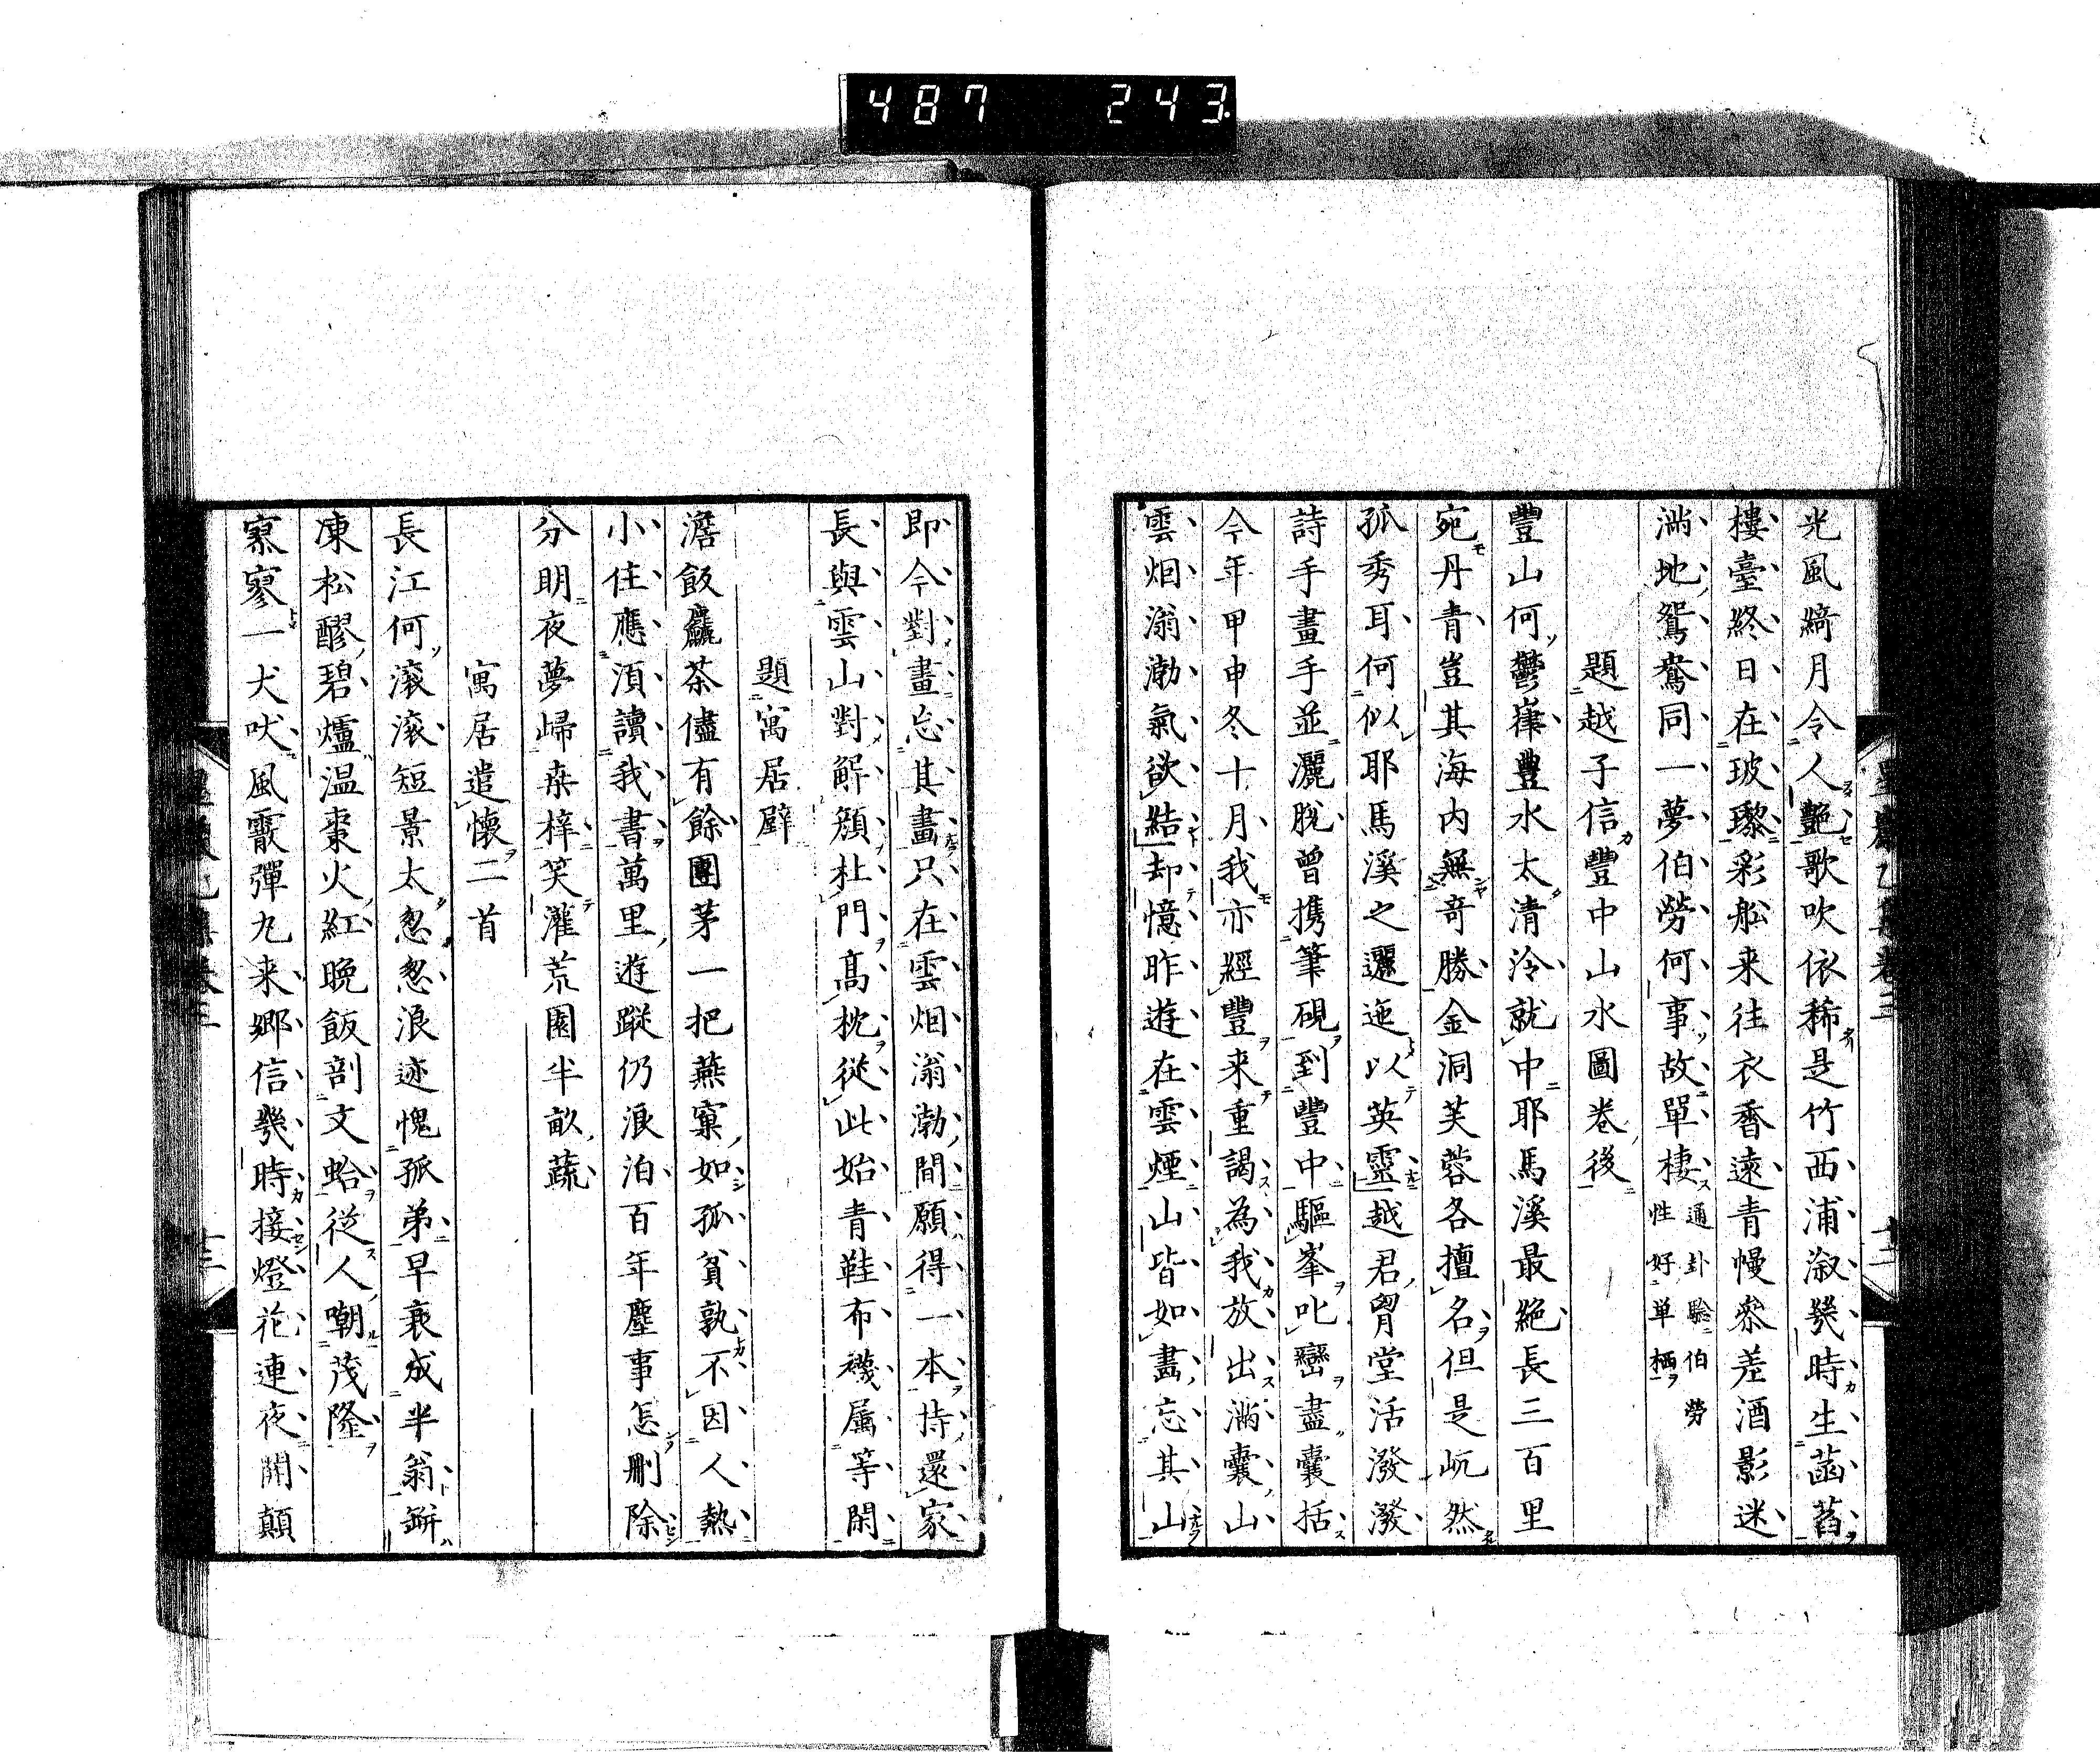 487 243
光風綺月令人艷歌吹依稀是竹西浦溆幾時生菡萏
樓臺終日在玻瓈彩船来往衣香遠青幔參差酒影迷
滿地鴛鴦同一夢伯勞何事故單棲通卦驗伯勞性好単栖
題越子信豐中山水圖卷後
豐山何鬱嵂豐水太清泠就中耶馬溪最絶長三百里
宛丹青豈其海内無奇勝金洞芙蓉各擅名但是屼然
孤秀耳何似耶馬溪之邐迤以英靈越君胷堂活潑潑
詩手畫手並灑脱曾携筆硯到豐中驅峯叱巒盡囊括
今年甲申冬十月我亦經豐来重謁為我放出滿囊山
雲烟滃渤氣欲結却憶昨遊在雲煙山皆如畫忘其山
即今對畫忘其畫只在雲烟滃渤間願得一本持還家
長與雲山對解顔杜門高枕從此始青鞋布襪属等閑
題寓居壁
澹飯麤茶儘有餘團茅一把燕窠如孤貧孰不因人熱
小住應須讀我書萬里遊蹤仍浪泊百年塵事怎刪除
分明夜夢歸桒梓笑灌荒園半畝蔬
寓居遣懷二首
長江何滚滚短景太怱怱浪迹愧孤弟早衰成半翁缾
凍松醪碧爐温棗火紅晩飯剖文蛤從人嘲茂隆
寡寥一犬吠風霰彈丸来郷信幾時接燈花連夜開顛